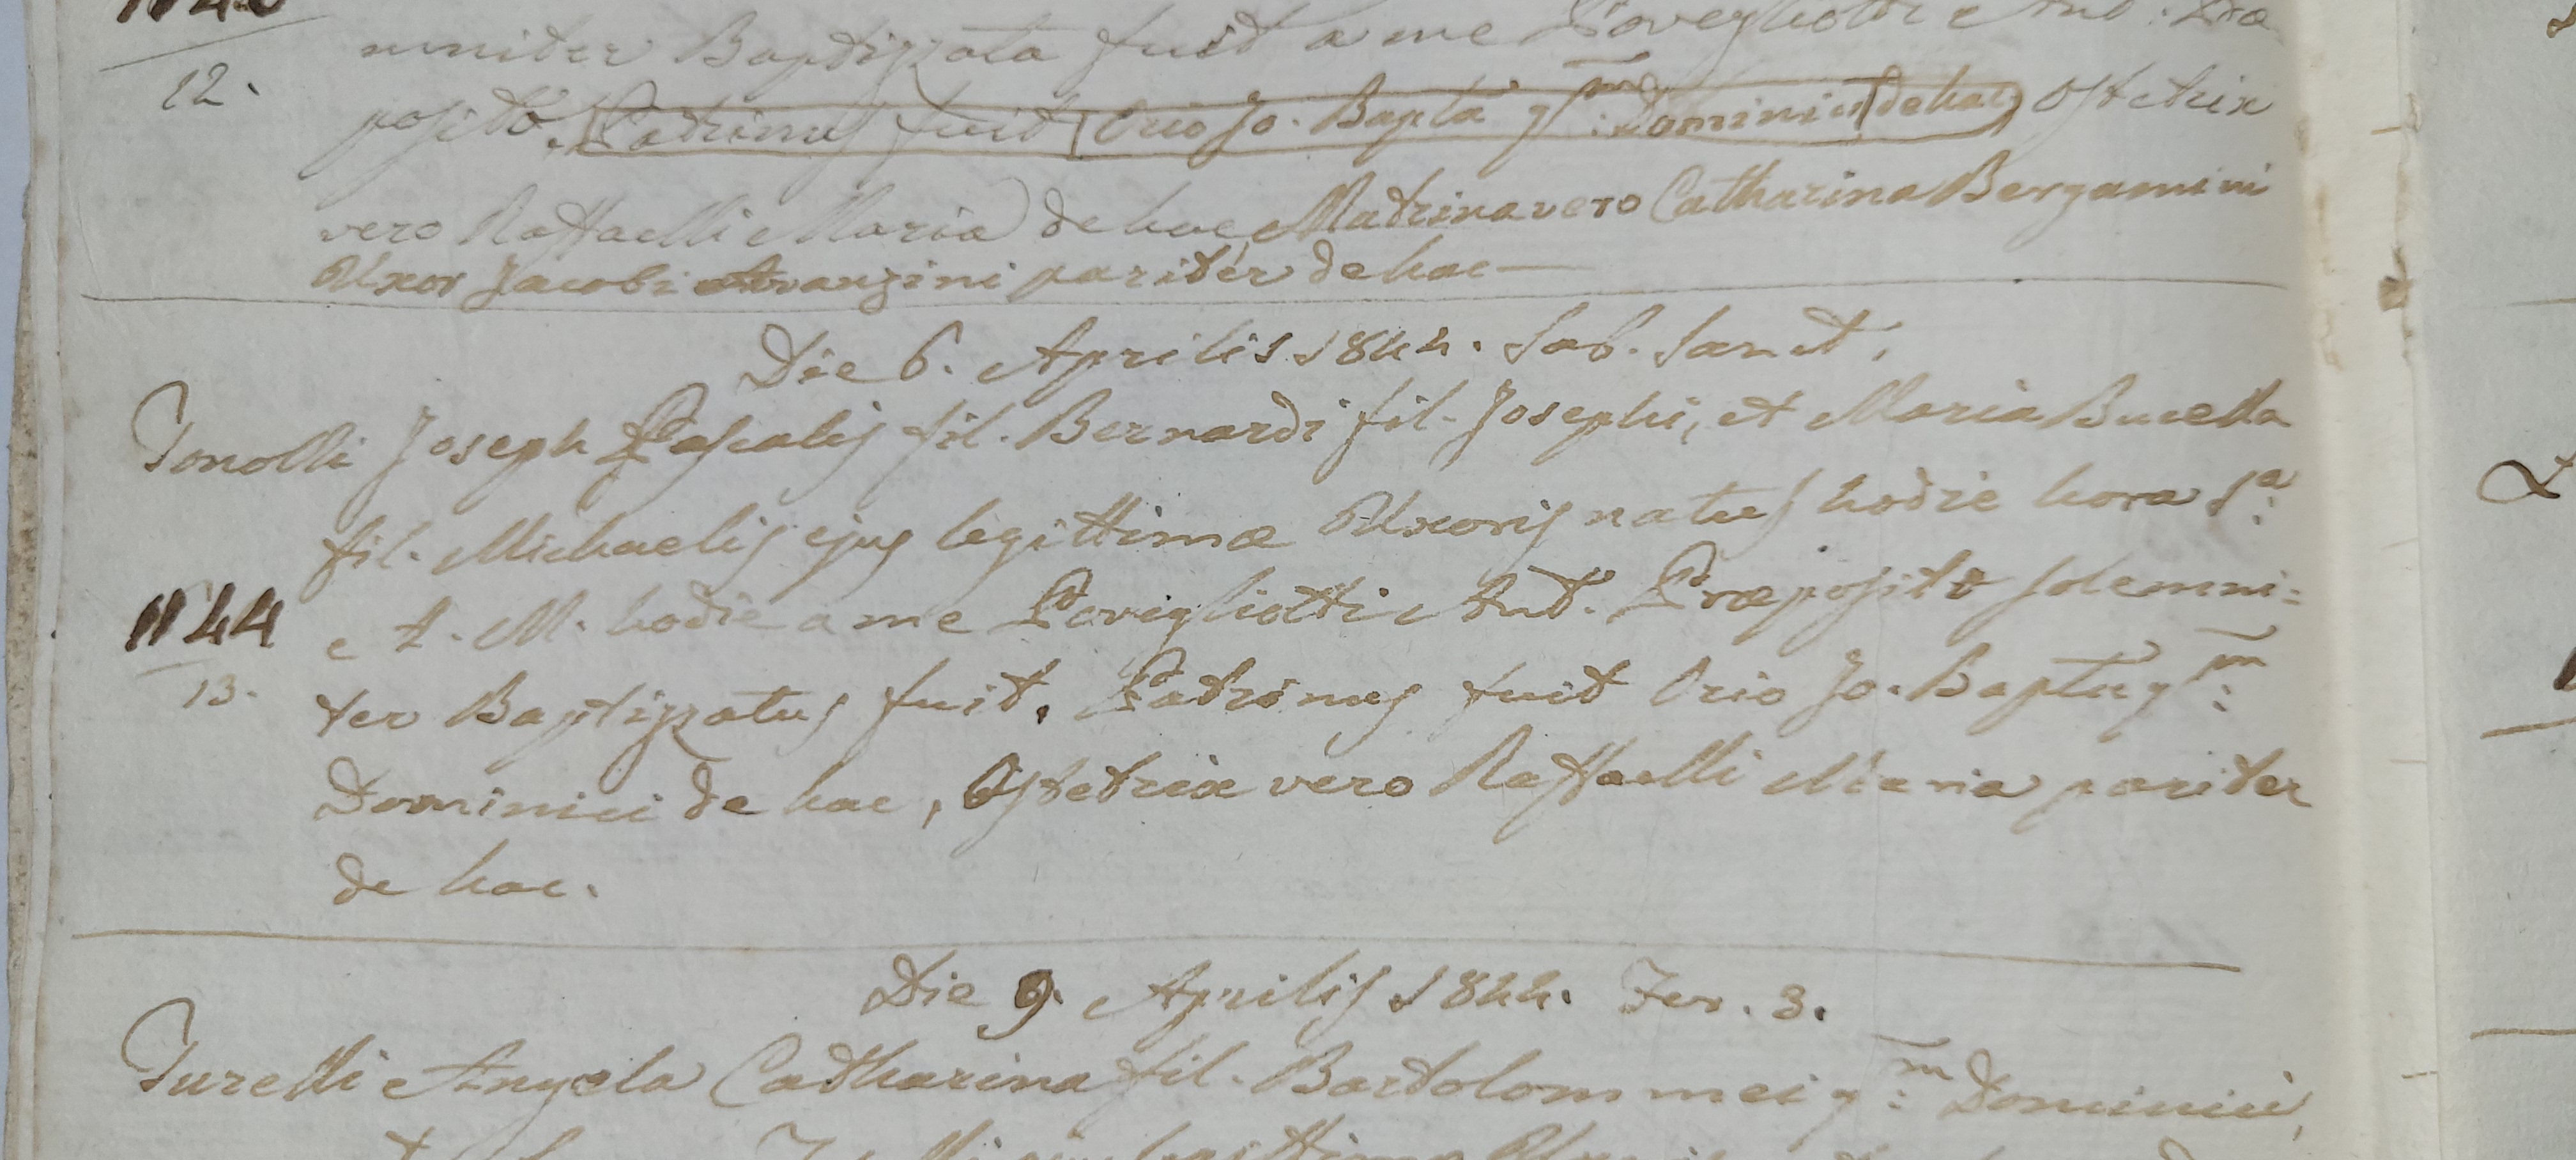 12.
muniter Baptizzata fuit a me Povegliotti Ant. Præ
posito. Patrinus fuit Orio Jo. Bapta qm: Dominici de hac, Ostetrix
vero Raffaelli Maria de hac, Matrina vero Catharina Bergamini
Uxor Jacobi Avanzini paritèr de hac—
Die 6. Aprilis 1844. Sab. Sanct.
Tonolli Joseph Pascalis fil. Bernardi fil. Josephi, et Maria Bucella
fil. Michaelis ejus legittimæ Uxoris natus hodie hora 1a:
A. M. hodie a me Povigliotti Ant. Præposito solemni=
1144
13.
ter Baptizzatus fuit. Patrinus fuit Orio Jo. Bapta qm:
Dominici de hac, Ostetrix vero Raffaelli Maria pariter
de hac.
Die 9. Aprilis 1844. Fer. 3.
Turelli Angela Catharina fil. Bartolommei qm: Dominici,